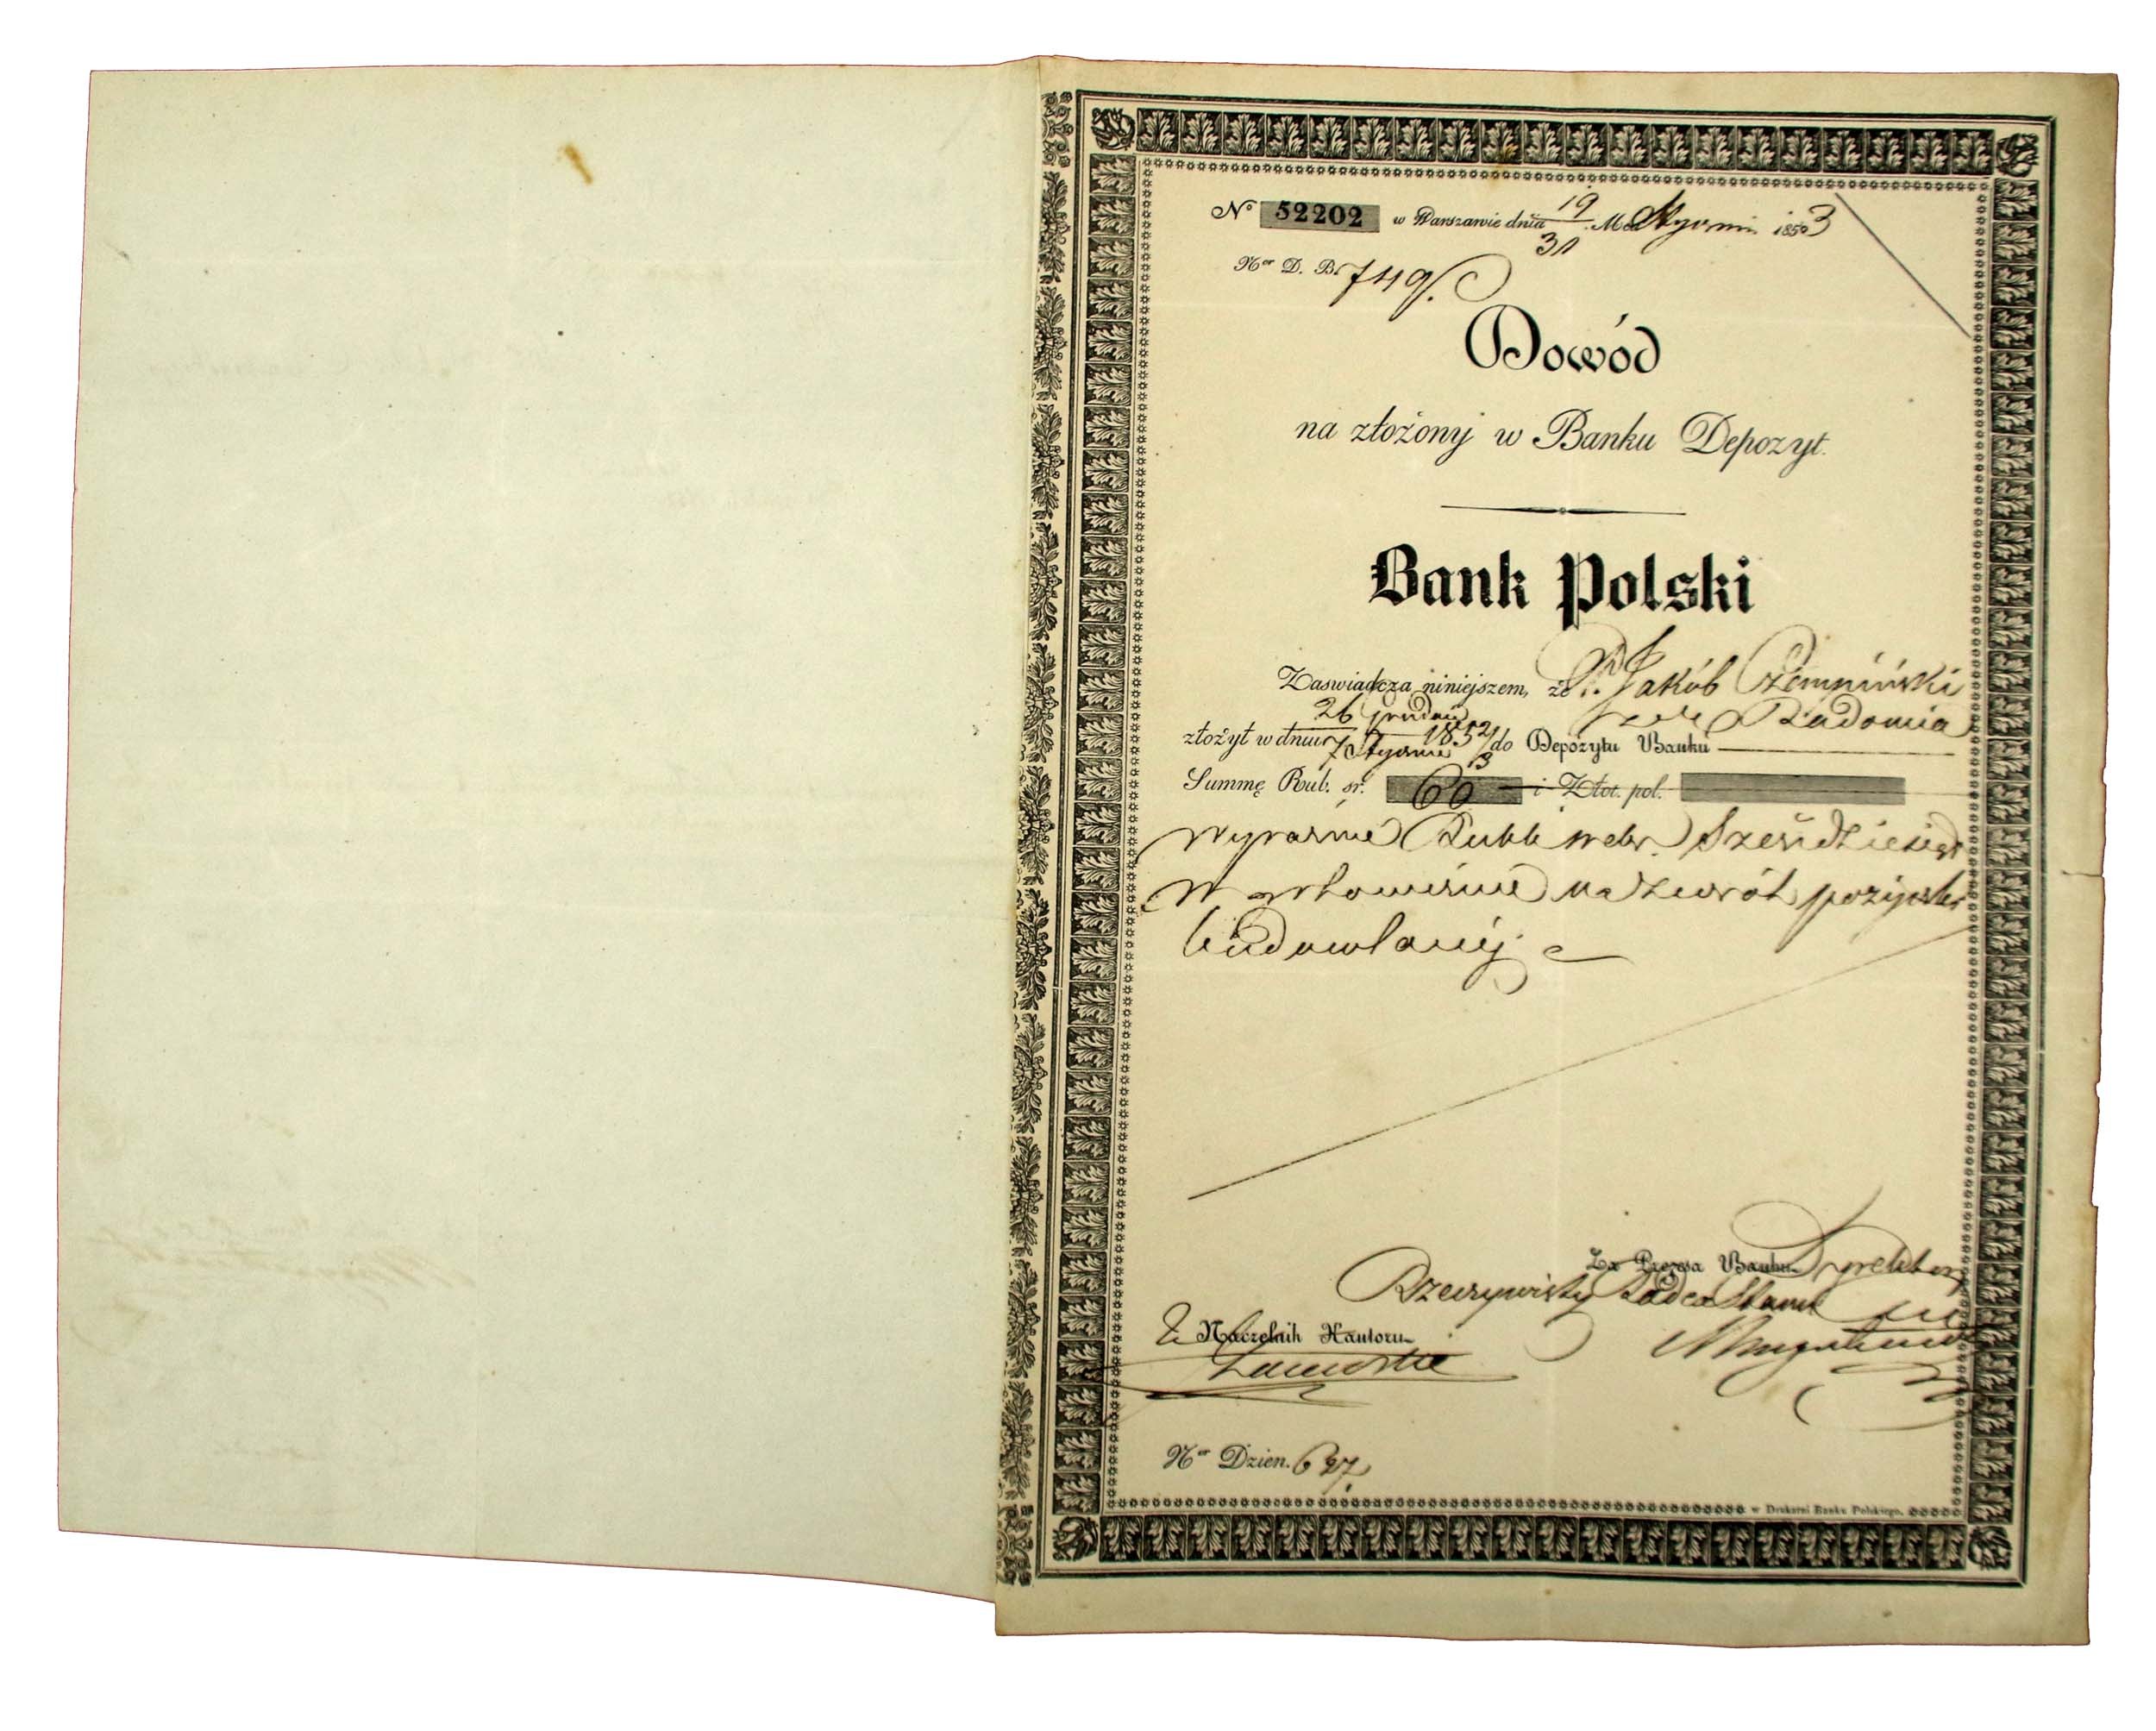 No 52202 w Warszawie dnia 19/31 Mca Stycznia 1853
Nor D. B. 749/.
Dowód
na złożony w Banku Depozyt.
Bank Polski
Zaswiadcza niniejszem, że P. Jakób
z Radomia
złożył w dniu 26 Grudnia / 7 Stycznia 1852/3 do Depozytu Banku
Summę Rub. sr. 60 i Złot. pol.
wyraźnie Rubli srebr. Sześćdziesiąt
w gotowiźnie na zwrót pożyczki
budowlanéj
Za Prezesa Banku Dyrektor
Rzeczywisty Radca Stanu
Naczelnik Kantoru
Nor Dzien. 627.
w Drukarni Banku Polskiego.